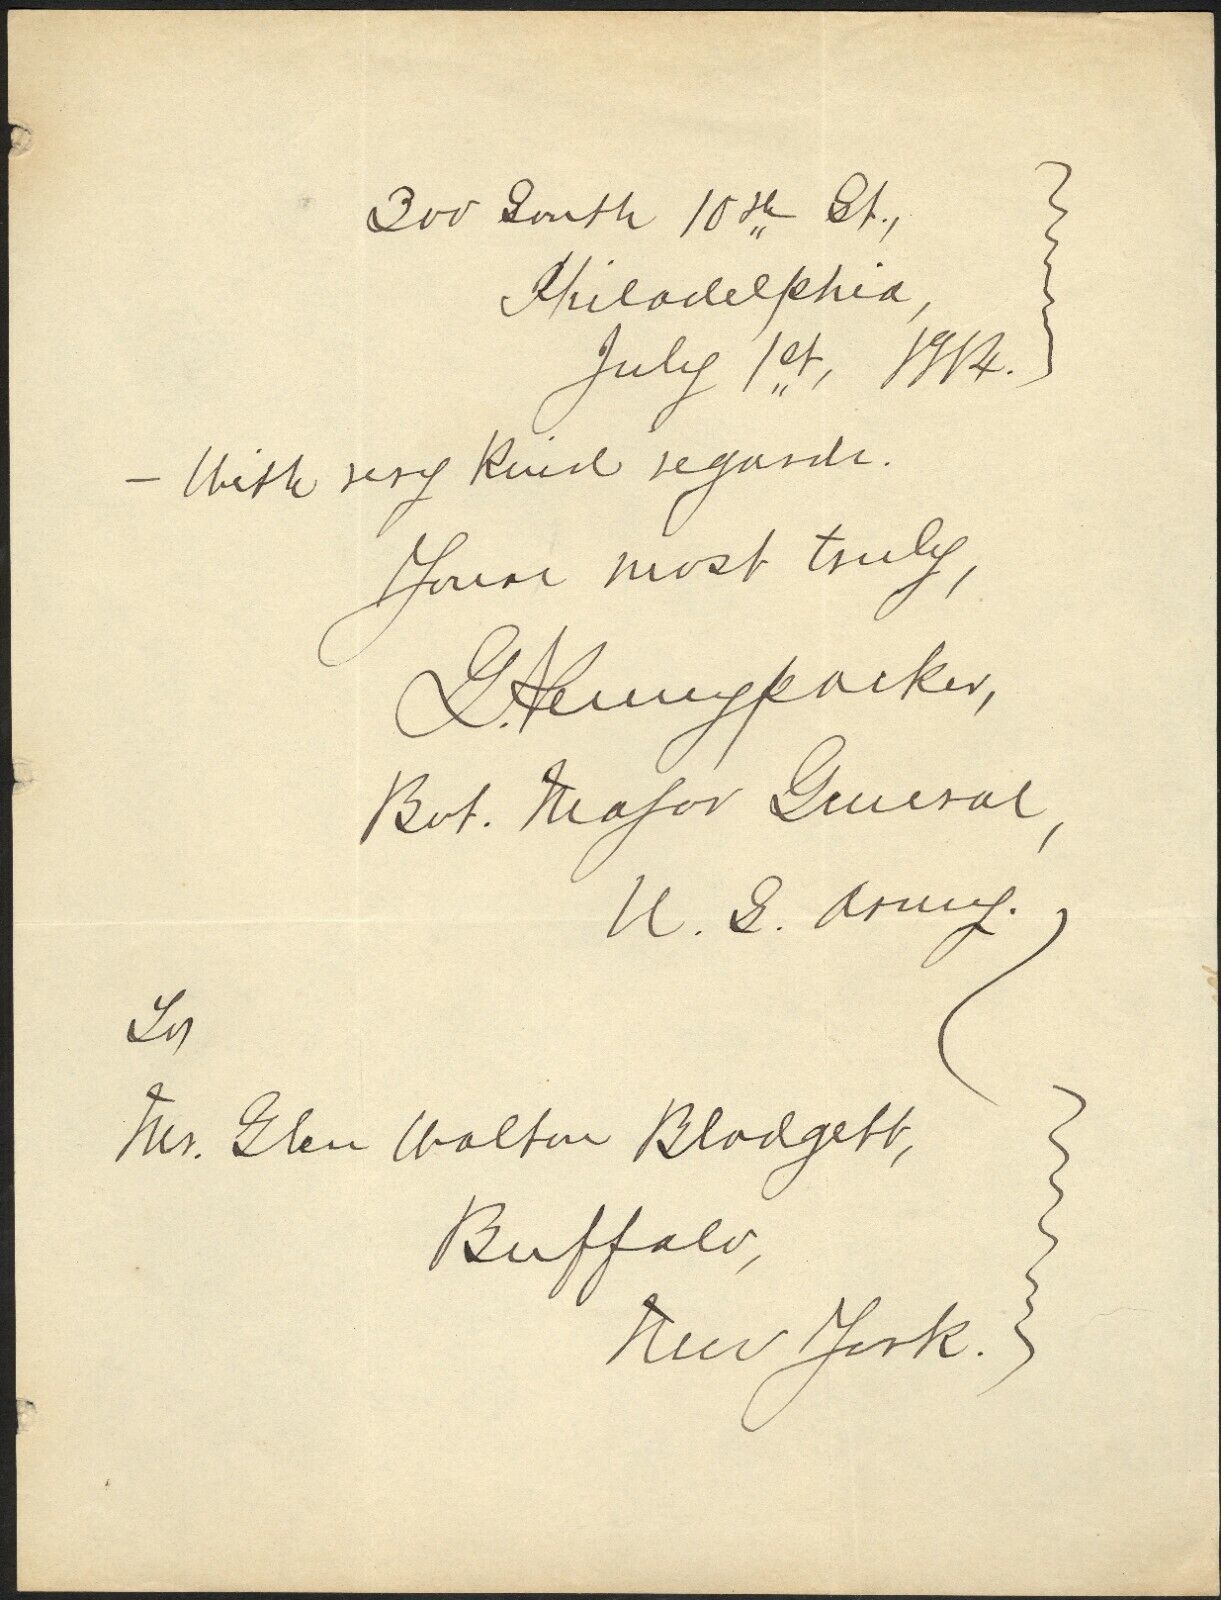 300 South 10th St.,
Philadelphia,
July 1st, 1914.
– With very kind regards.
Yours most truly,
G. Pennypacker,
Bvt. Major General,
U. S. Army.
To
Mr. Glen Walton Blodgett,
Buffalo,
New York.